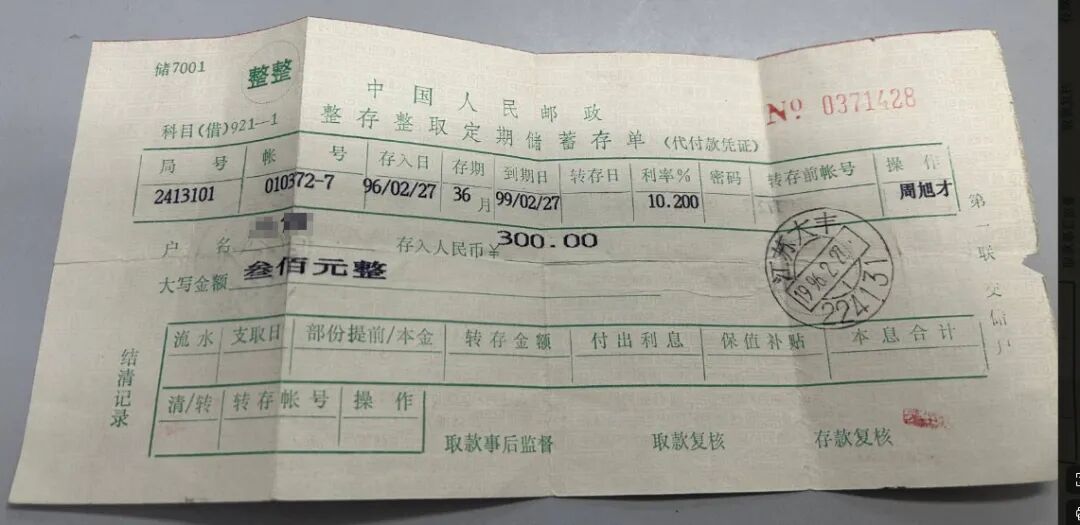 储7001
整整
中国人民邮政
Nº 0371428
科目(借)921—1
整存整取定期储蓄存单 (代付款凭证)
局号 帐号 存入日 存期 到期日 转存日 利率% 密码 转存前帐号 操作
2413101 010372-7 96/02/27 36月 99/02/27 10.200 周旭才
户名 存入人民币¥ 300.00
大写金额 叁佰元整
江苏大丰
1996.2.27
1
224131
第一联 交储户
结清记录
流水 支取日 部份提前/本金 转存金额 付出利息 保值补贴 本息合计
清/转 转存帐号 操作
取款事后监督 取款复核 存款复核